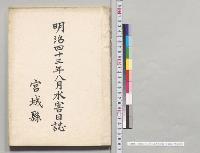 明治四十三年八月水害日誌
宮城縣